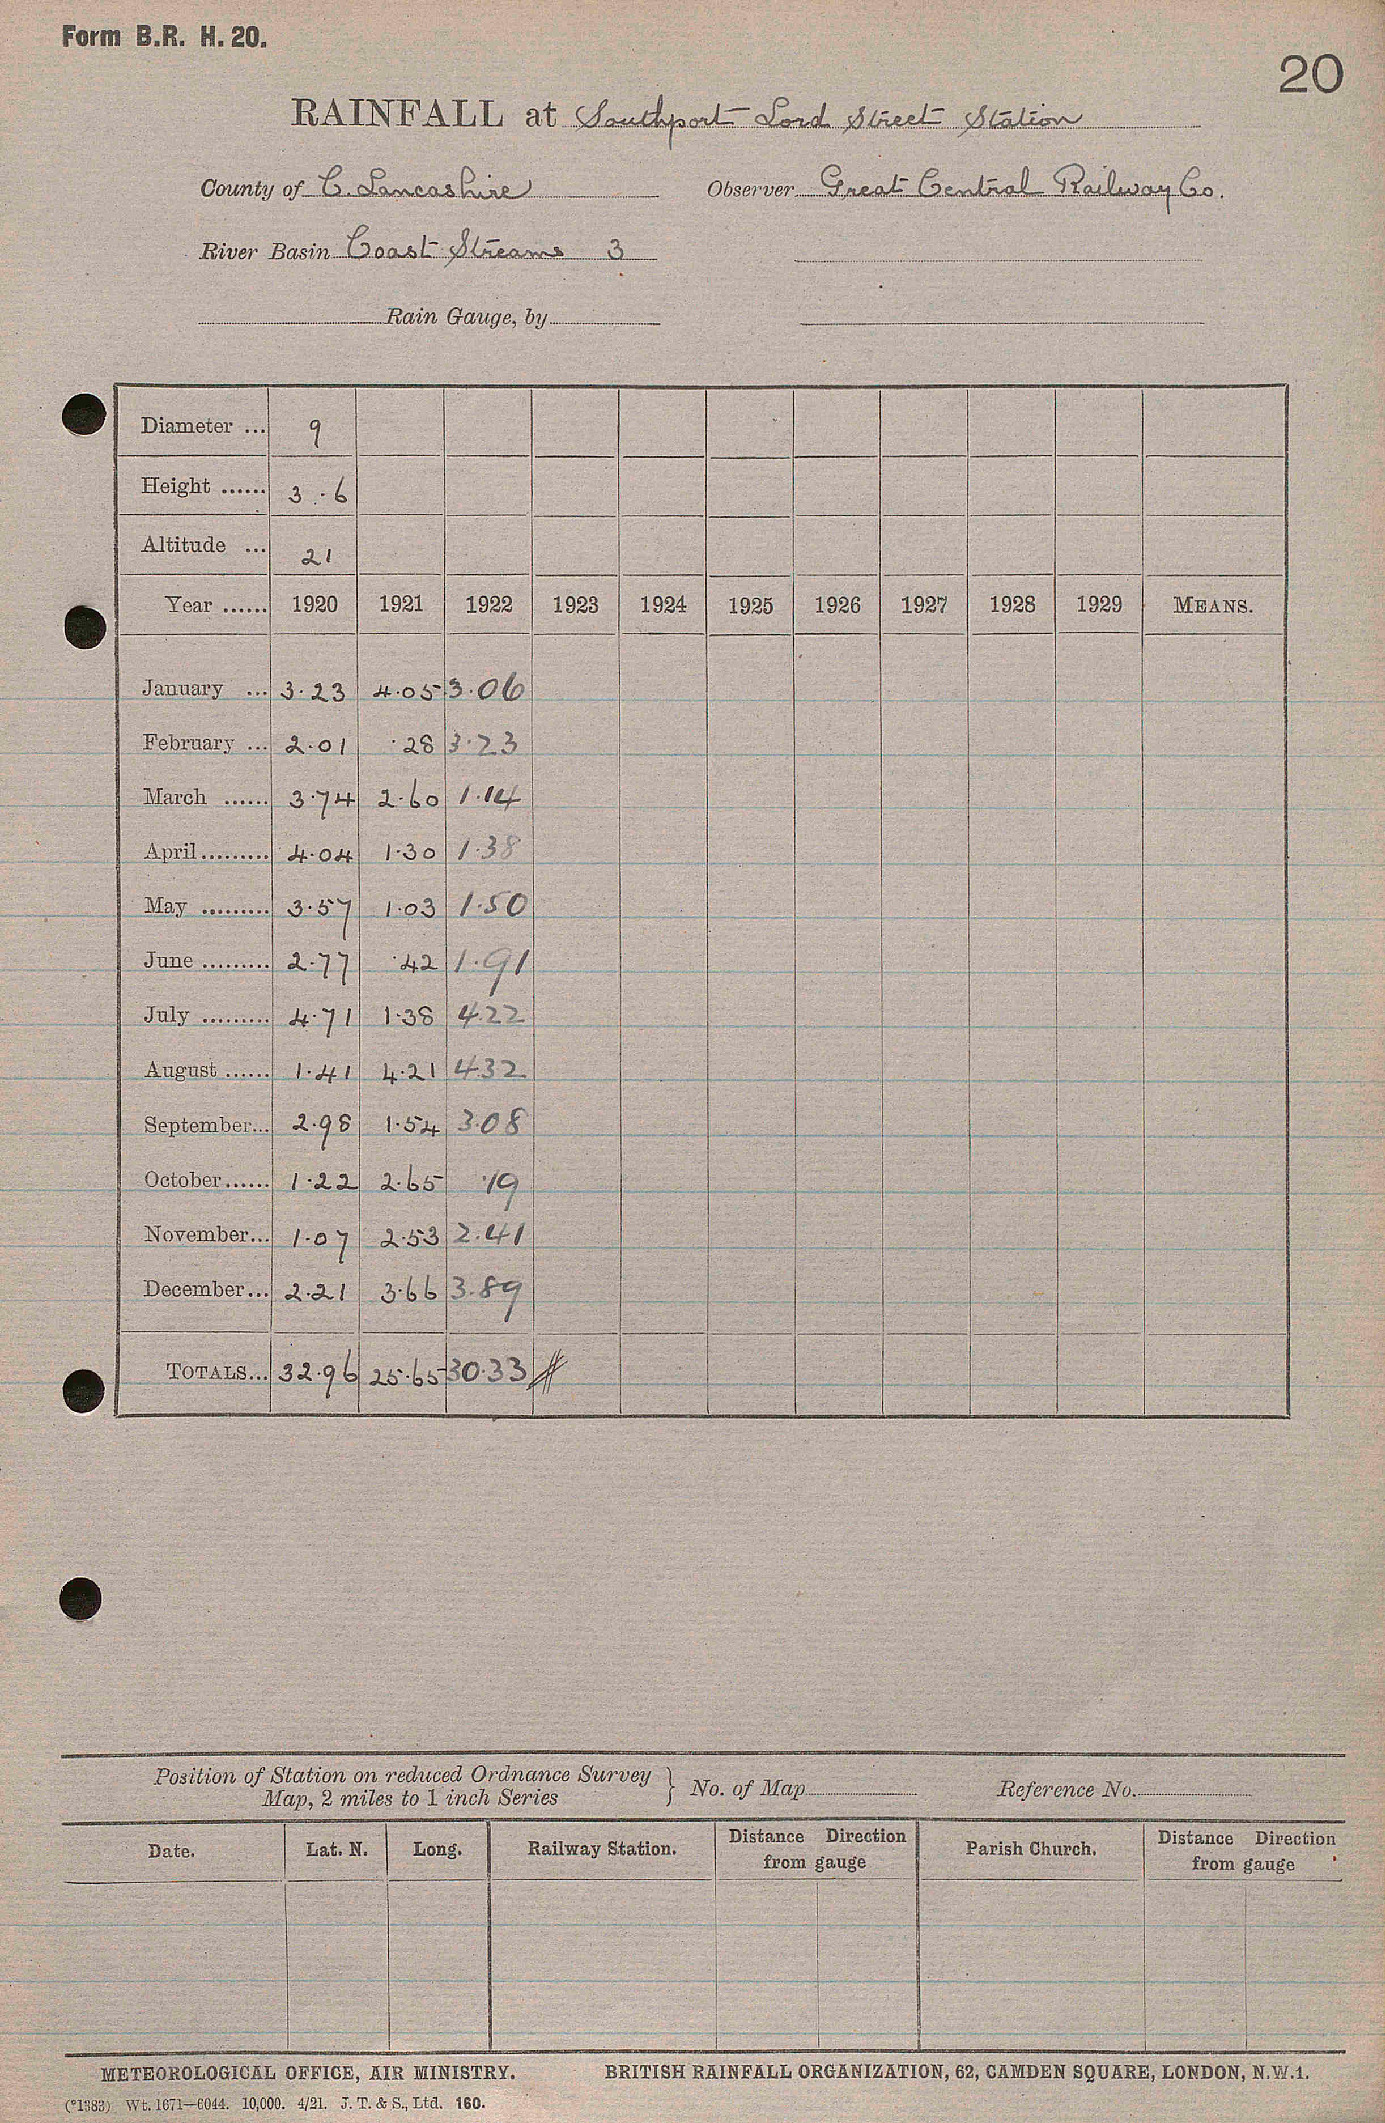 Form B.R. H. 20.
20
RAINFALL at Southport Lord Street Station
County of C. Lancashire Observer Great Central Railway Co.
River Basin Coast Streams 3
Rain Gauge, by
Diameter ... 9
Height ...... 3.6
Altitude ... 21
Year ...... 1920 1921 1922 1923 1924 1925 1926 1927 1928 1929 MEANS.
January ... 3.23 4.05 3.06
February ... 2.01 .28 3.23
March ...... 3.74 2.60 1.14
April ......... 4.04 1.30 1.38
May ......... 3.57 1.03 1.50
June ......... 2.77 .42 1.91
July ......... 4.71 1.38 4.22
August ...... 1.41 4.21 4.32
September... 2.98 1.54 3.08
October...... 1.22 2.65 .19
November... 1.07 2.53 2.41
December... 2.21 3.66 3.89
TOTALS... 32.96 25.65 30.33
Position of Station on reduced Ordnance Survey
Map, 2 miles to 1 inch Series } No. of Map Reference No.
Date. Lat. N. Long. Railway Station. Distance Direction from gauge Parish Church. Distance Direction from gauge
METEOROLOGICAL OFFICE, AIR MINISTRY. BRITISH RAINFALL ORGANIZATION, 62, CAMDEN SQUARE, LONDON, N.W.1.
(*1383) Wt. 1671—6044. 10,000. 4/21. J. T. & S., Ltd. 160.